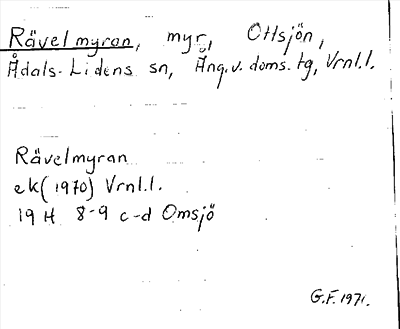 Rävelmyran, myr, Ottsjön,
Ådals-Lidens sn, Ång.v. doms.tg, Vrnl.l.
Rävelmyran
ek (1970) Vrnl.l.
19 H 8-9 c-d Omsjö
G.F. 1971.